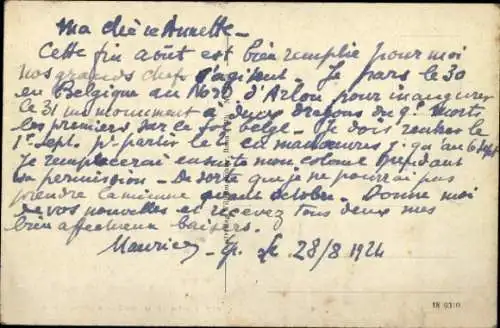 Ma chère Annette -
Cette fin août est bien remplie pour moi
nos grands chefs s'agitent - Je pars le 30
en Belgique au Nord d'Arlon pour inaugurer
le 31 un monument à deux dragons du 9e morts
les premiers sur le sol belge - Je dois rentrer le
1er Sept. pr partir le en manœuvres j. qu'au 6 Sept
Je remplacerai ensuite mon colonel pendant
sa permission - De sorte que je ne pourrai pas
prendre la mienne avant octobre - Donne moi
de vos nouvelles et recevez tous deux mes
bien affectueux baisers.
Maurice 28/8 1924
18 6310